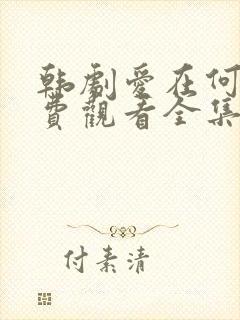 韩劇愛在何
費觀看全集
付素清